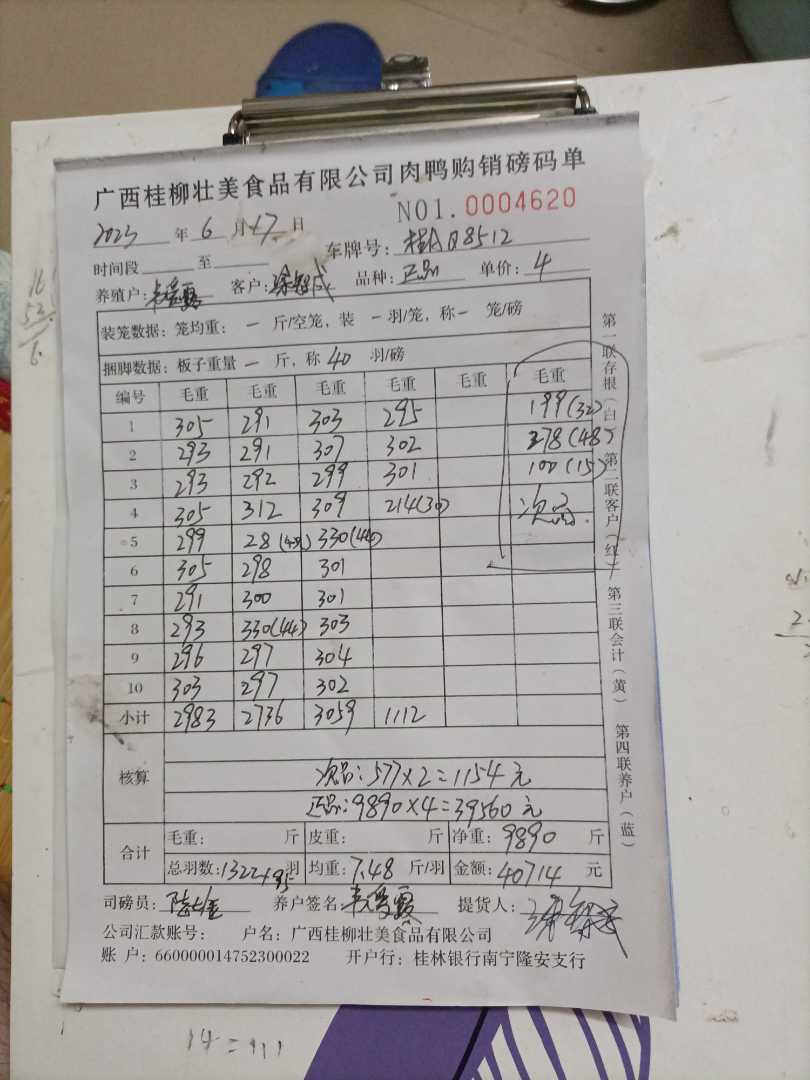 广西桂柳壮美食品有限公司肉鸭购销磅码单
NO1.0004620
2023 年 6 月 17 日
车牌号：桂A Q8512
时间段 至
养殖户： 客户： 品种：正品 单价：4
装笼数据：笼均重：一 斤/空笼，装 一 羽/笼，称一 笼/磅
捆脚数据：板子重量 一 斤，称 40 羽/磅
编号 毛重 毛重 毛重 毛重 毛重 毛重
1 305 291 303 295 199(32)
2 293 291 307 302 278(48)
3 293 292 299 301 100(15)
4 305 312 309 214(30) 次品.
5 299 28 330(44)
6 305 298 301
7 291 300 301
8 293 330(44) 303
9 296 297 304
10 303 297 302
小计 2983 2736 3059 1112
核算 次品：577×2=1154元
正品：9890×4=39560元
合计 毛重： 斤 皮重： 斤 净重：9890 斤
总羽数：1322+95 羽 均重：7.48 斤/羽 金额：40714 元
司磅员： 养户签名： 提货人：
公司汇款账号： 户名：广西桂柳壮美食品有限公司
账 户：660000014752300022 开户行：桂林银行南宁隆安支行
第一联存根（白） 第二联客户（红） 第三联会计（黄） 第四联养户（蓝）